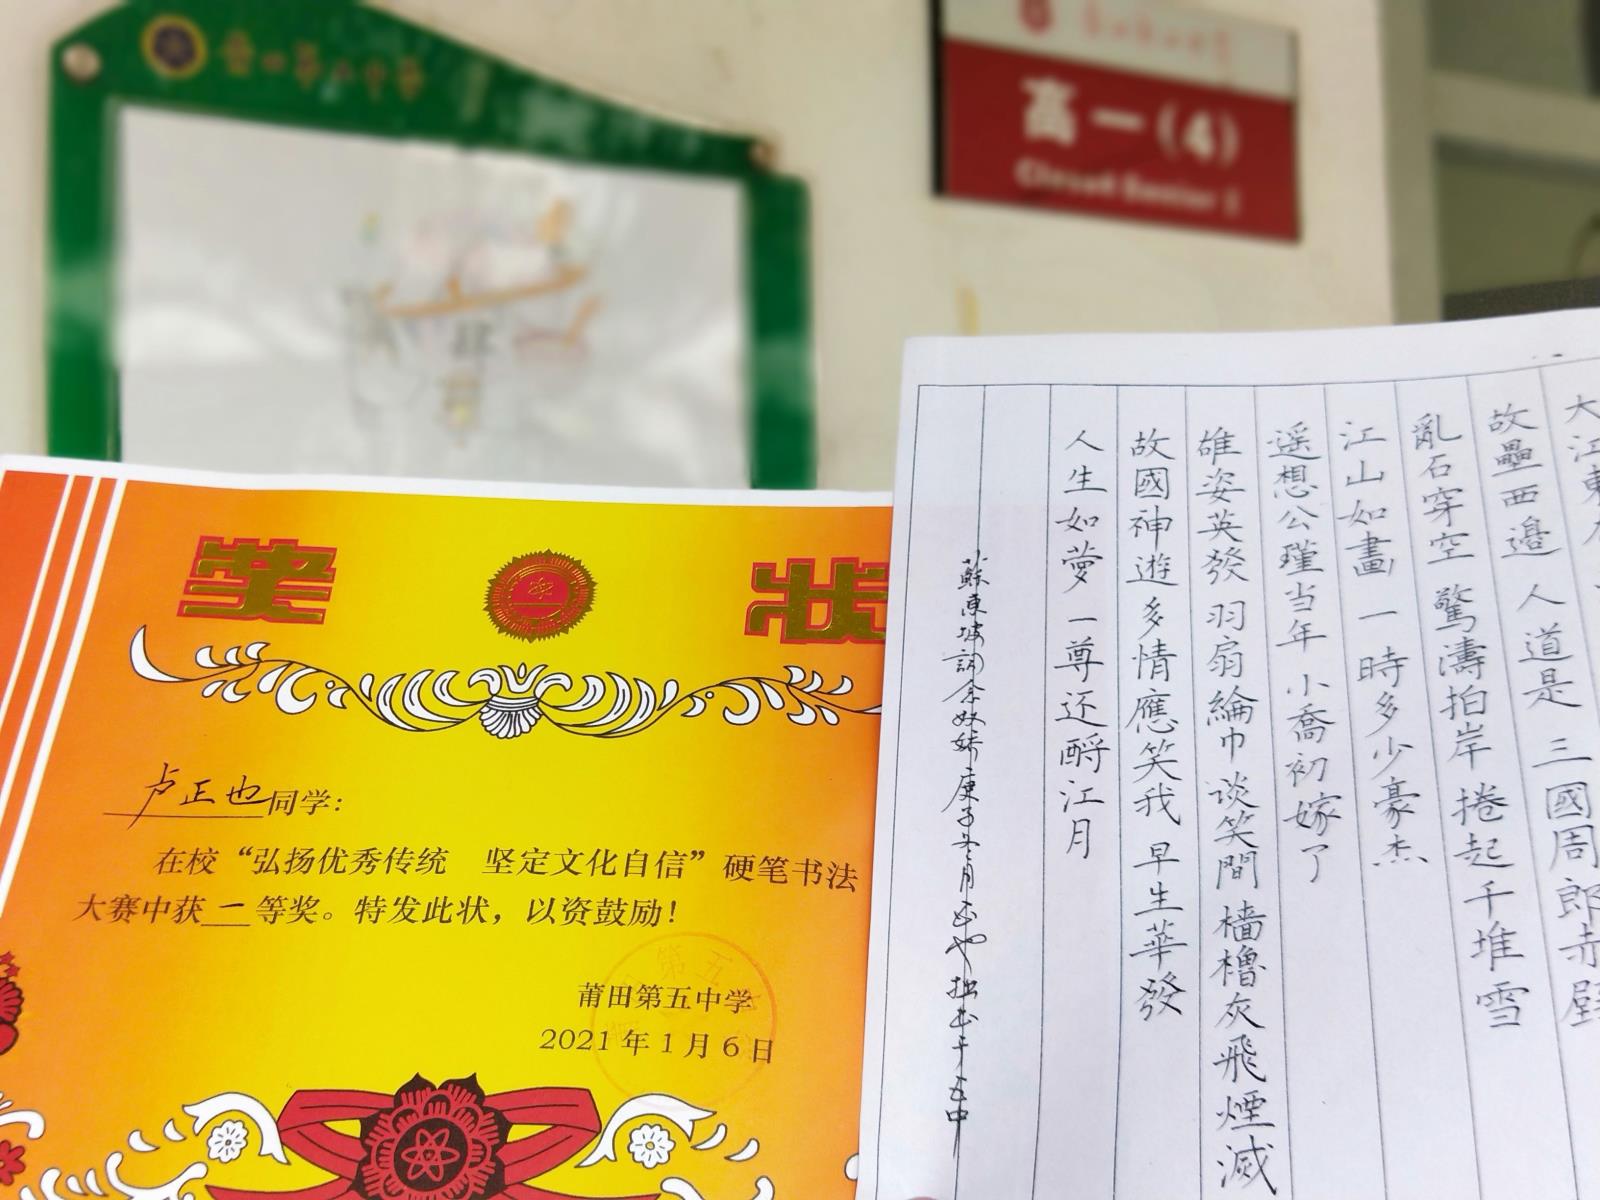 高一(4)
Class4 Senior 1
奖 状
卢正也同学:
在校“弘扬优秀传统 坚定文化自信”硬笔书法
大赛中获一等奖。特发此状,以资鼓励!
莆田第五中学
2021年1月6日
大江東
故壘西邊 人道是 三國周郎赤壁
亂石穿空 驚濤拍岸 捲起千堆雪
江山如畫 一時多少豪杰
遥想公瑾当年 小喬初嫁了
雄姿英發 羽扇綸巾 谈笑間 檣櫓灰飛煙滅
故國神遊 多情應笑我 早生華發
人生如夢 一尊还酹江月
蘇東坡詞念奴嬌庚子冬月正也拙书于五中